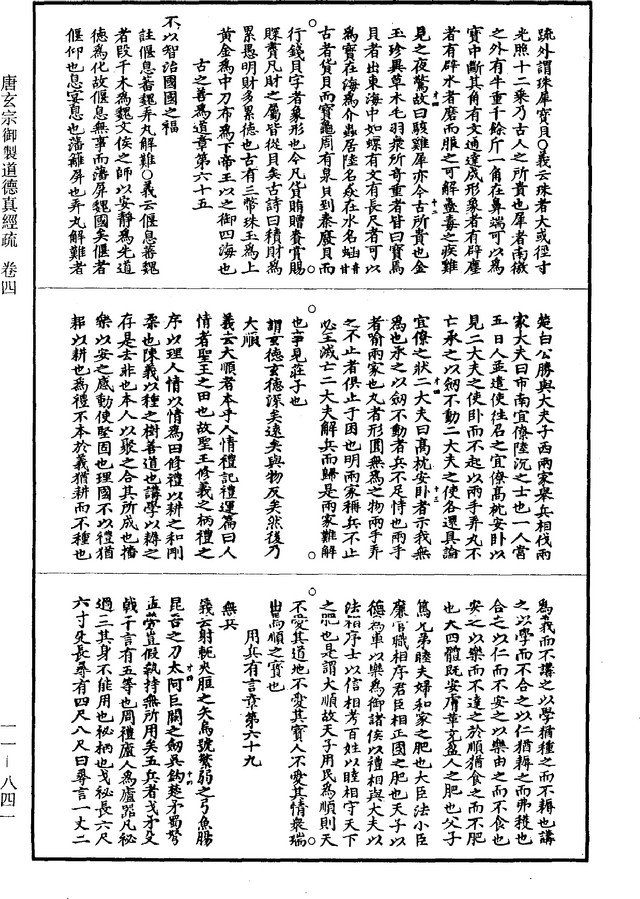 疏外謂珠犀寶貝○義云珠者大或徑寸
光照十二乘乃古人之所貴也犀者南徼
之外有牛重千餘斤一角在鼻端可以為
寶中斷其角有文通達成形象者有辟塵
者有辟水者磨而服之可解蠱毒之疾雞
見之夜驚故曰駭雞犀亦今古所貴也金
玉珍異草木毛羽衆所奇重者皆曰寶焉
貝者出東海中如螺有文有長尺者可以
為寶在海為介蟲居陸名猋在水名蜬
古者貨貝而寶龜周有泉貝到秦廢貝而
行錢貝字者象形也今凡貨賄贈賚賞賜
賝賣凡財之屬皆從貝矣古詩曰積財為
累愚明財多累德也古有三幣珠玉為上
黃金為中刀布為下帝王以之御四海也
古之善為道章第六十五
不以智治國國之福
註偃息蕃魏弄丸解難○義云偃息蕃魏
者段干木為魏文侯之師以安靜為先道
德為化故偃息無事而藩屏魏國矣偃者
偃仰也息宴息也藩籬屏也弄丸解難者
楚白公勝與大夫子西兩家舉兵相伐兩
家大夫曰市南宜僚陸沉之士也一人當
五百人並遣使往召之宜僚高枕安卧以
見二大夫之使卧而不起以兩手弄丸不
亡承之以劒不動二大夫之使各還具論
宜僚之狀二大夫曰高枕安卧者示我無
為也承之以劒不動者兵不足恃也兩手
者喻兩家也丸者形圓無為之物兩手弄
之不止者俱止于困也明兩家稱兵不止
必至滅亡二大夫解兵而歸是兩家難解
也事見莊子也
謂玄德玄德深矣遠矣與物反矣然後乃
大順
義云大順者本乎人情禮記禮運篇曰人
情者聖王之田也故聖王修義之柄禮之
序以理人情以情為田修禮以耕之和剛
柔也陳義以種之樹善道也講學以耨之
存是去非也本人以聚之合其所成也播
樂以安之感動使堅固也理國不以禮猶
耜以耕也為禮不本於義猶耕而不種也
為義而不講之以學猶種之而不耨也講
之以學而不合之以仁猶耨之而弗穫也
合之以仁而不安之以樂由之而不食也
安之以樂而不達之於順猶食之而不肥
也大四體既安膚革充盈人之肥也父子
篤兄弟睦夫婦和家之肥也大臣法小臣
廉官職相序君臣相正國之肥也天子以
德為車以樂為御諸侯以禮相與大夫以
法相序士以信相考百姓以睦相守天下
之肥也是謂大順故天子用民為順則天
不愛其道地不愛其寶人不愛其情衆瑞
出焉順之寶也
用兵有言章第六十九
無兵
義云射軹夾脰之矢烏號繁弱之弓魚腸
昆吾之刀太阿巨闕之劒吳鈎楚矛蜀弩
孟勞豈假執持無所用矣五兵者戈矛殳
戟干言有五等也周禮廬人為廬器凡柲
過三其身不能用也柲柄也戈柲長六尺
六寸殳長尋有四尺八尺曰尋言一丈二
唐玄宗御製道德真經疏　卷四
一一—八四一